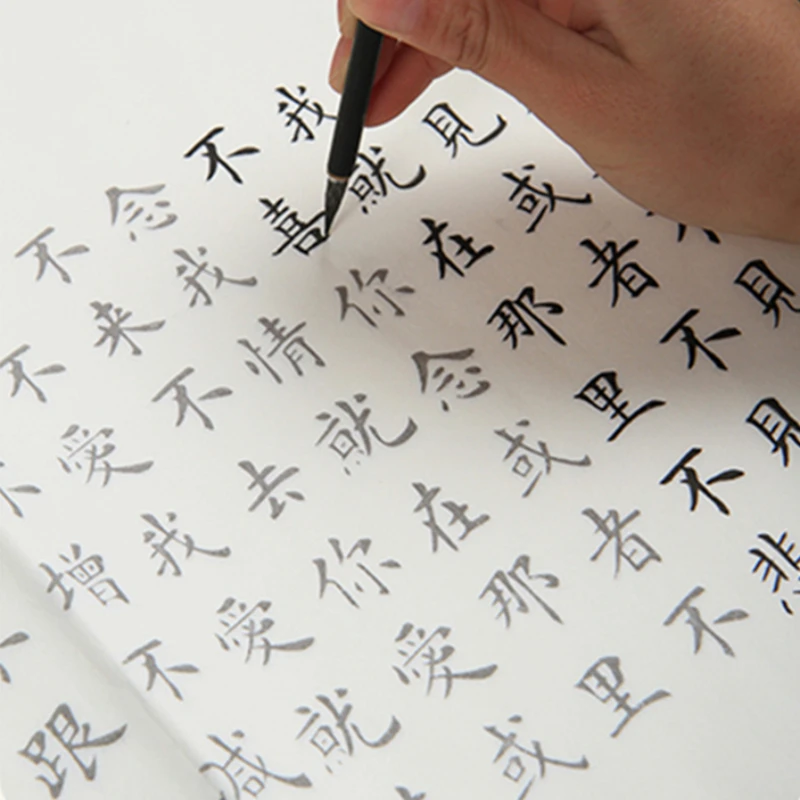 不見
見或者不見
我就在那里不悲
不喜你念或者不
念我情就在那里
不来不去你愛或
不愛我愛就
不增不减
跟